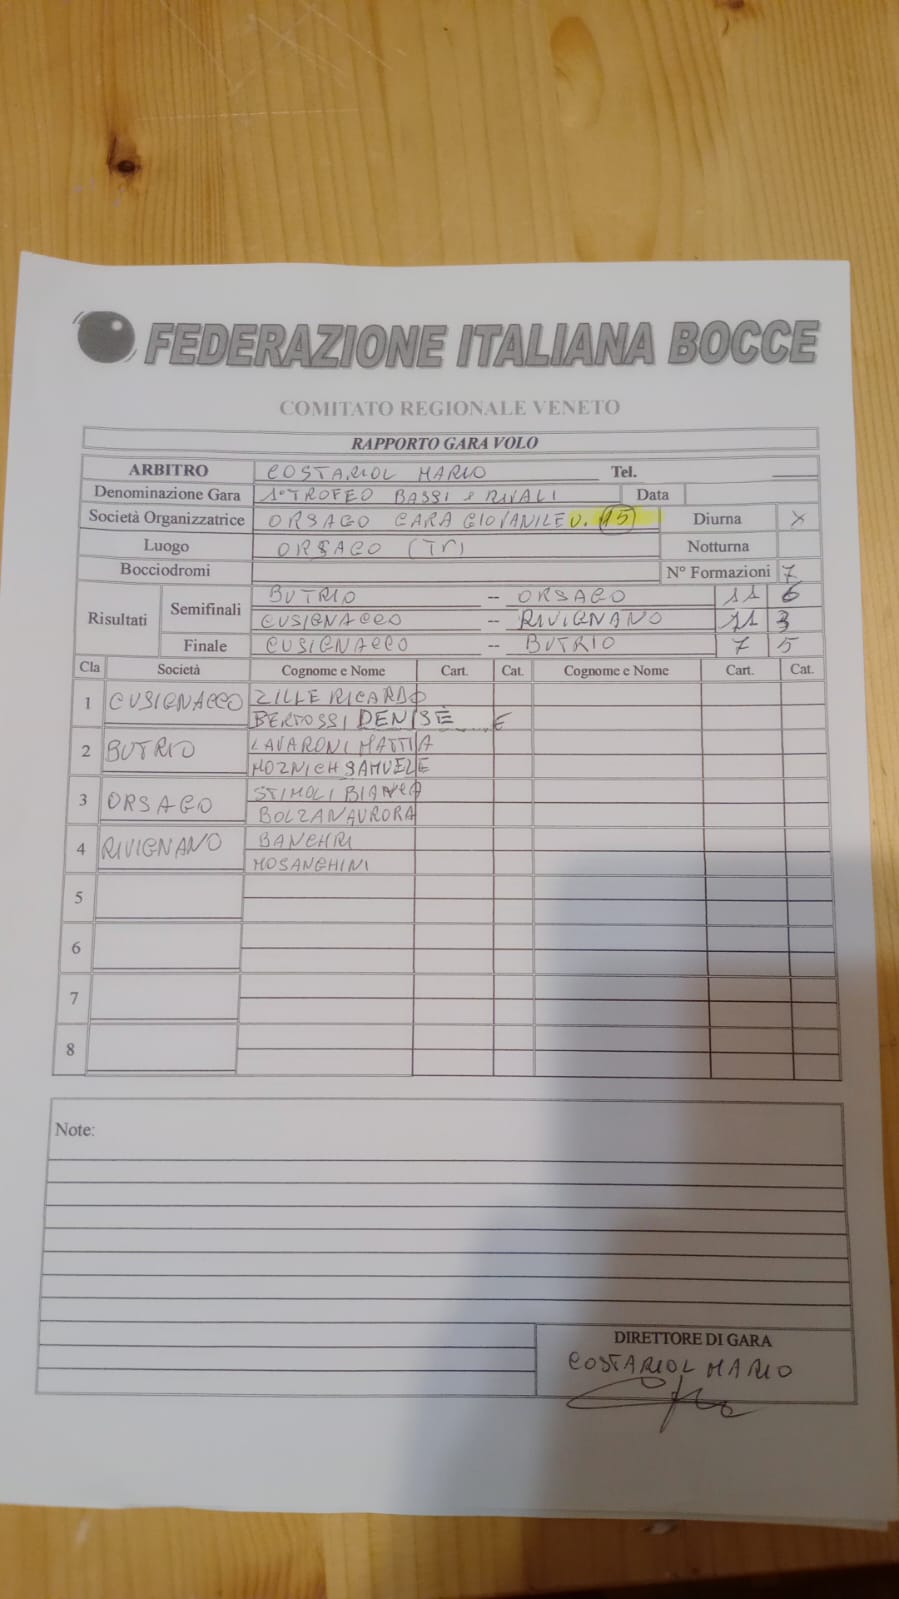 FEDERAZIONE ITALIANA BOCCE
COMITATO REGIONALE VENETO
RAPPORTO GARA VOLO
ARBITRO COSTARIOL MARIO Tel.
Denominazione Gara 1° TROFEO BASSI E RIVALI Data
Società Organizzatrice ORSAGO GARA GIOVANILE U. 15 Diurna X
Luogo ORSAGO (TV) Notturna
Bocciodromi N° Formazioni 7
Risultati Semifinali BUTRIO -- ORSAGO 11 6
CUSIGNACCO -- RIVIGNANO 11 3
Finale CUSIGNACCO -- BUTRIO 7 5
Cla Società Cognome e Nome Cart. Cat. Cognome e Nome Cart. Cat.
1 CUSIGNACCO ZILLE RICARDO
BERTOSSI DENISE E
2 BUTRIO LAVARONI MATTIA
MOZNICH SAMUELE
3 ORSAGO STIMOLI BIANCA
BOLZAN AURORA
4 RIVIGNANO BANCHRI
MOSANGHINI
5
6
7
8
Note:
DIRETTORE DI GARA
COSTARIOL MARIO